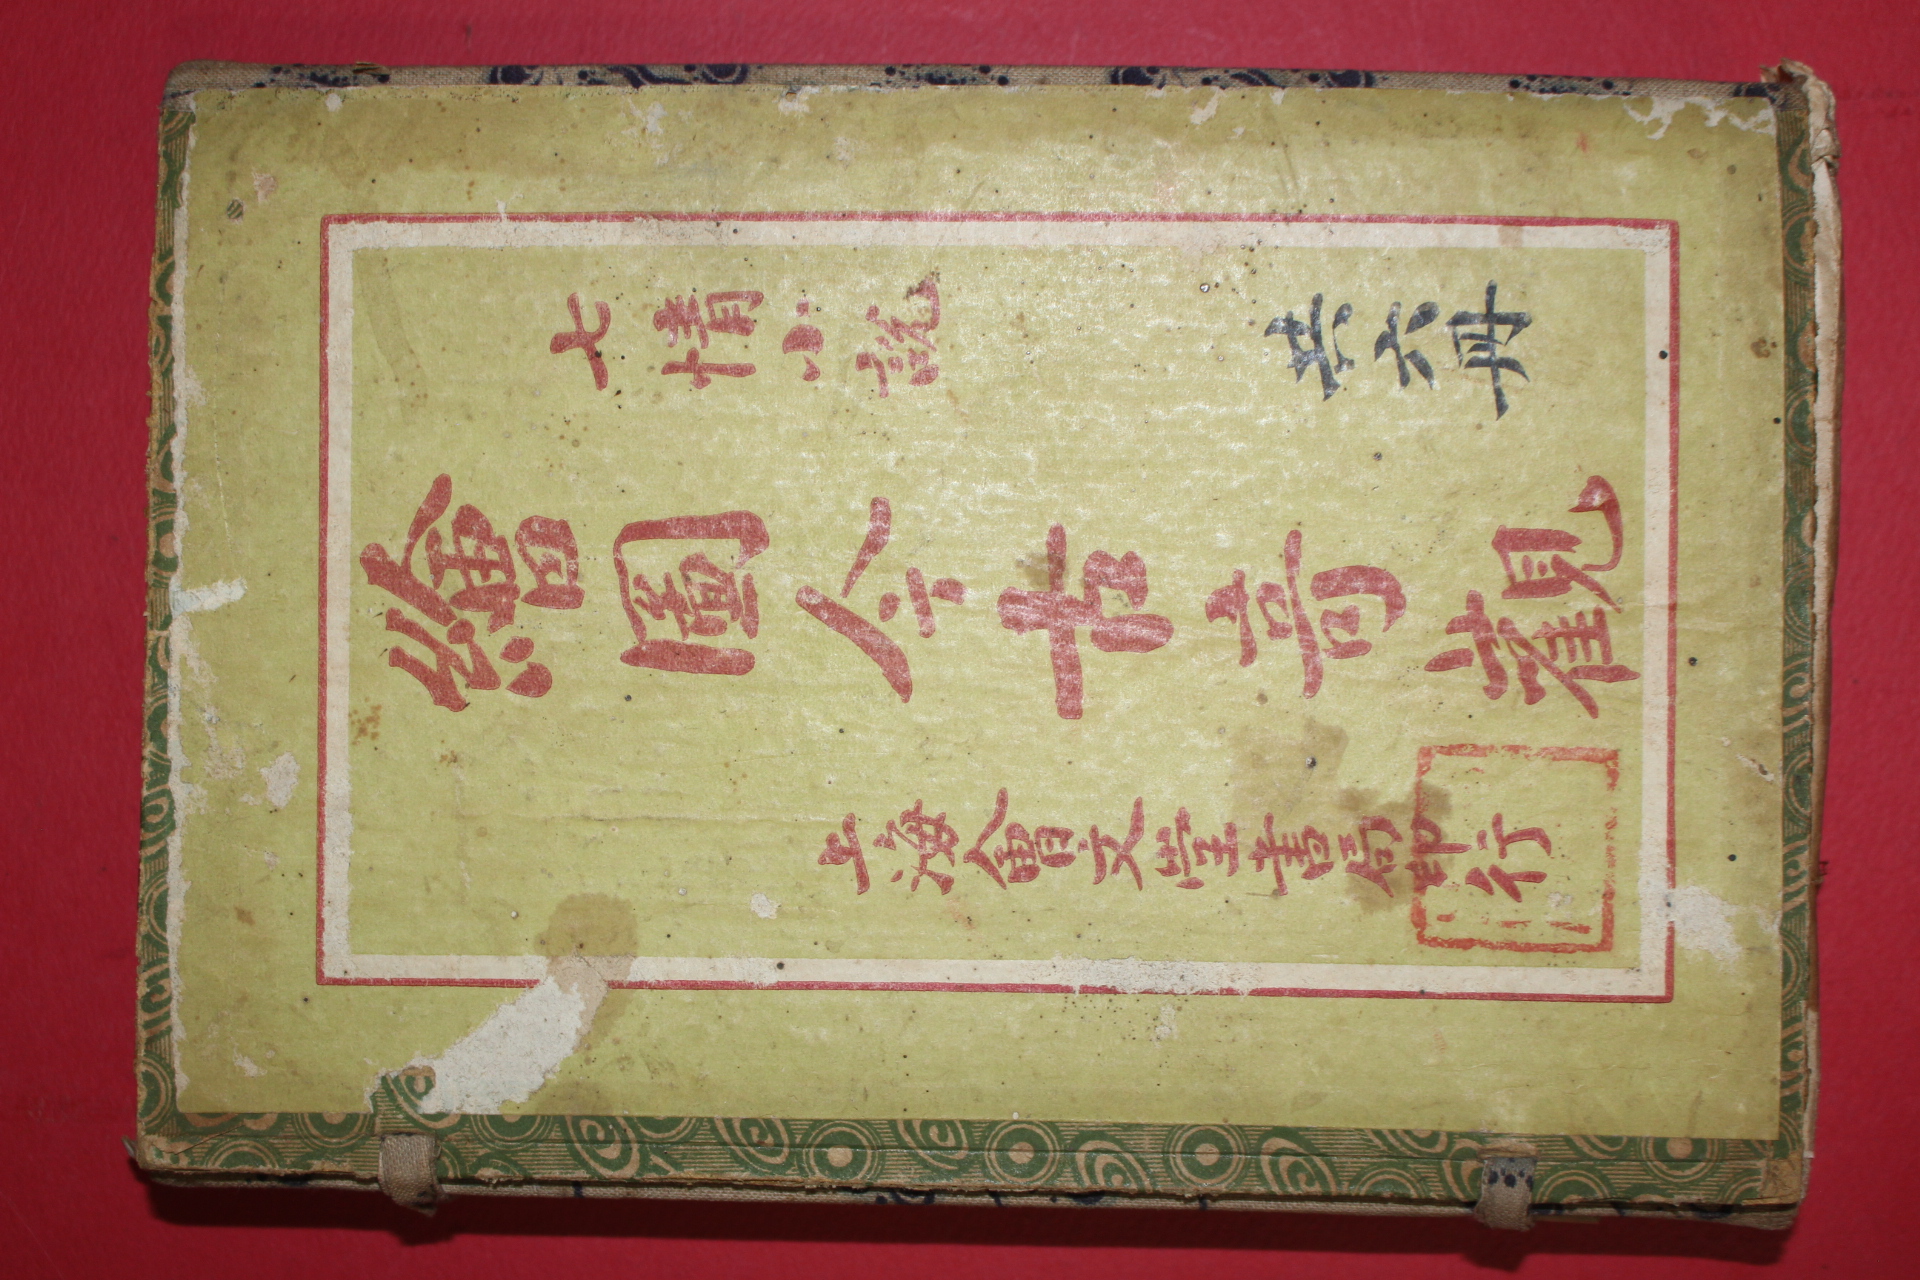 七情小說
共六冊
繪圖今古奇觀
上海會文堂書局印行